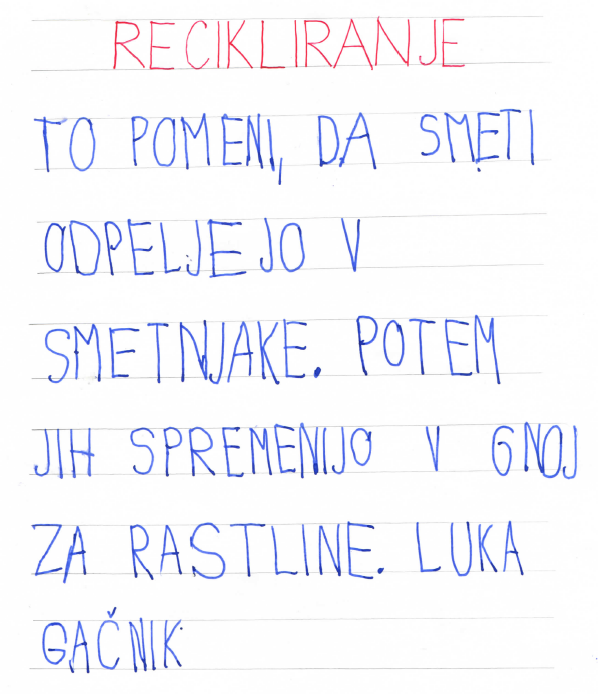 RECIKLIRANJE
TO POMENI, DA SMETI
ODPELJEJO V
SMETNJAKE. POTEM
JIH SPREMENIJO V GNOJ
ZA RASTLINE. LUKA
GAČNIK